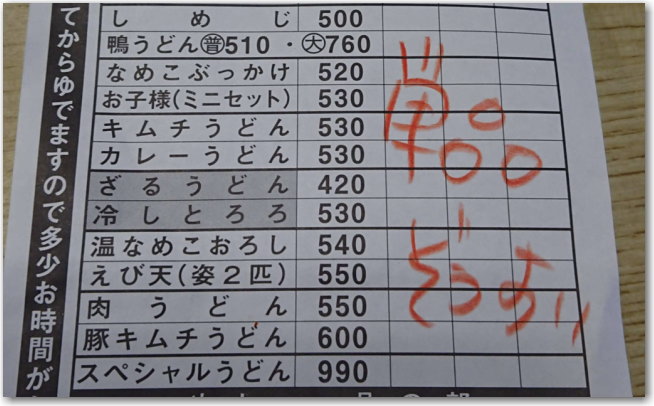 てからゆでますので多少お時間が
しめじ 500
鴨うどん㊥510・㊛760
なめこぶっかけ 520
お子様(ミニセット) 530
キムチうどん 530
カレーうどん 530
ざるうどん 420
冷しとろろ 530
温なめこおろし 540
えび天(姿2匹) 550
肉うどん 550
豚キムチうどん 600
スペシャルうどん 990
単